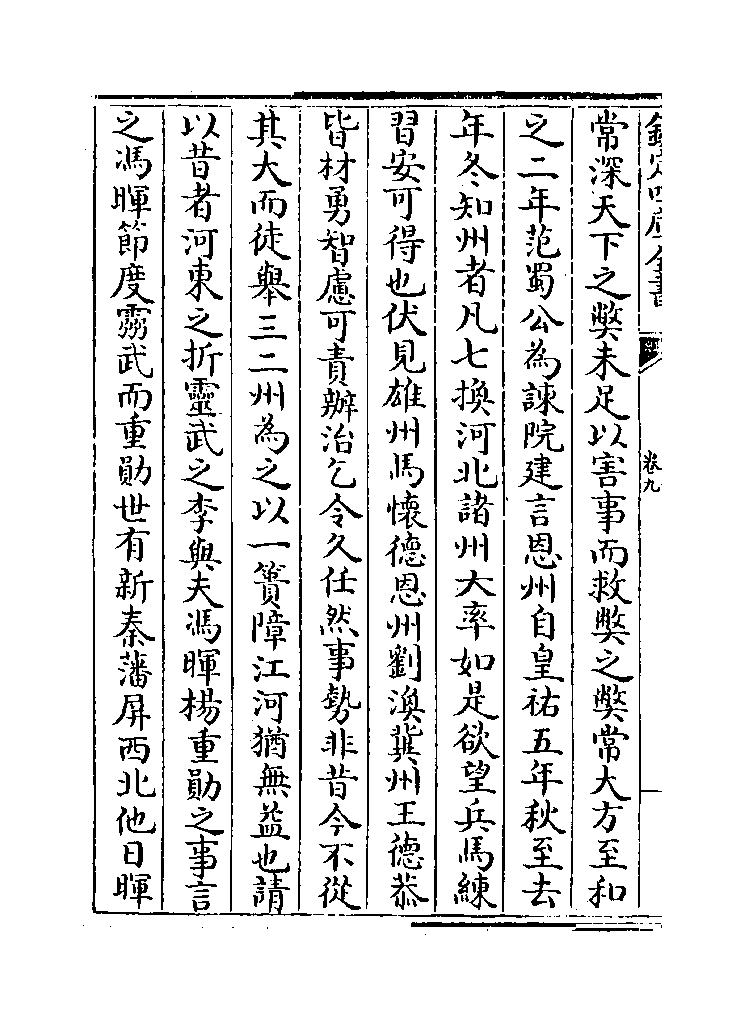 欽定四庫全書
卷九
常深天下之弊未足以害事而救弊之弊常大方至和
之二年范蜀公為諫院建言恩州自皇祐五年秋至去
年冬知州者凡七換河北諸州大率如是欲望兵馬練
習安可得也伏見雄州馬懷德恩州劉渙冀州王德恭
皆材勇智慮可責辦治乞令久任然事勢非昔今不從
其大而徒舉三二州為之以一簣障江河猶無益也請
以昔者河東之折靈武之李與夫馮暉楊重勛之事言
之馮暉節度靈武而重勛世有新秦藩屏西北他日暉